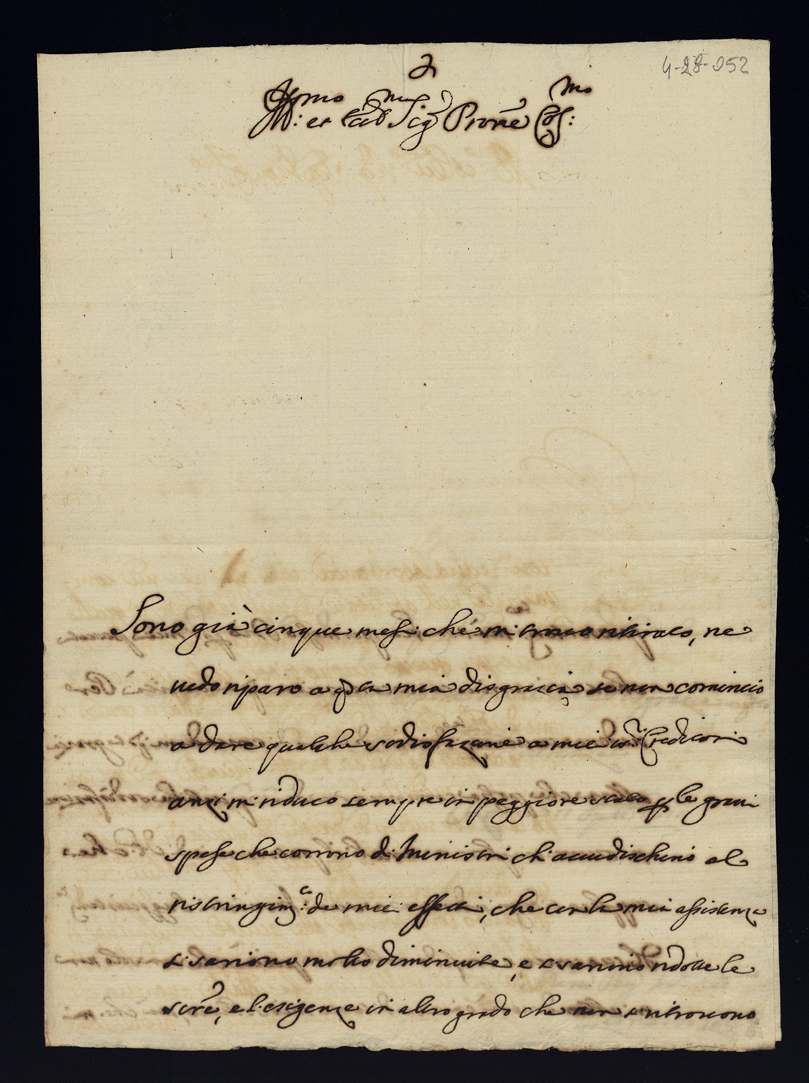 4-28-252
Ill:mo et Ecc:mo Sig:r Prone Col:mo
Sono già cinque mesi che mi trovo ritirato, ne
vedo riparo a q.ta mia disgracia se non comincio
a dare qualche sodisfazione a miei Creditori
anzi mi riduco sempre in peggiore stato p le gravi
spese che corrono di Ministri ch'accudischino al
ristringim.to de miei effetti, che con la mia assistenza
si sariono molto diminuite, e si sariono ridotte le
e l'esigenze in altro grado che non si ritrovono